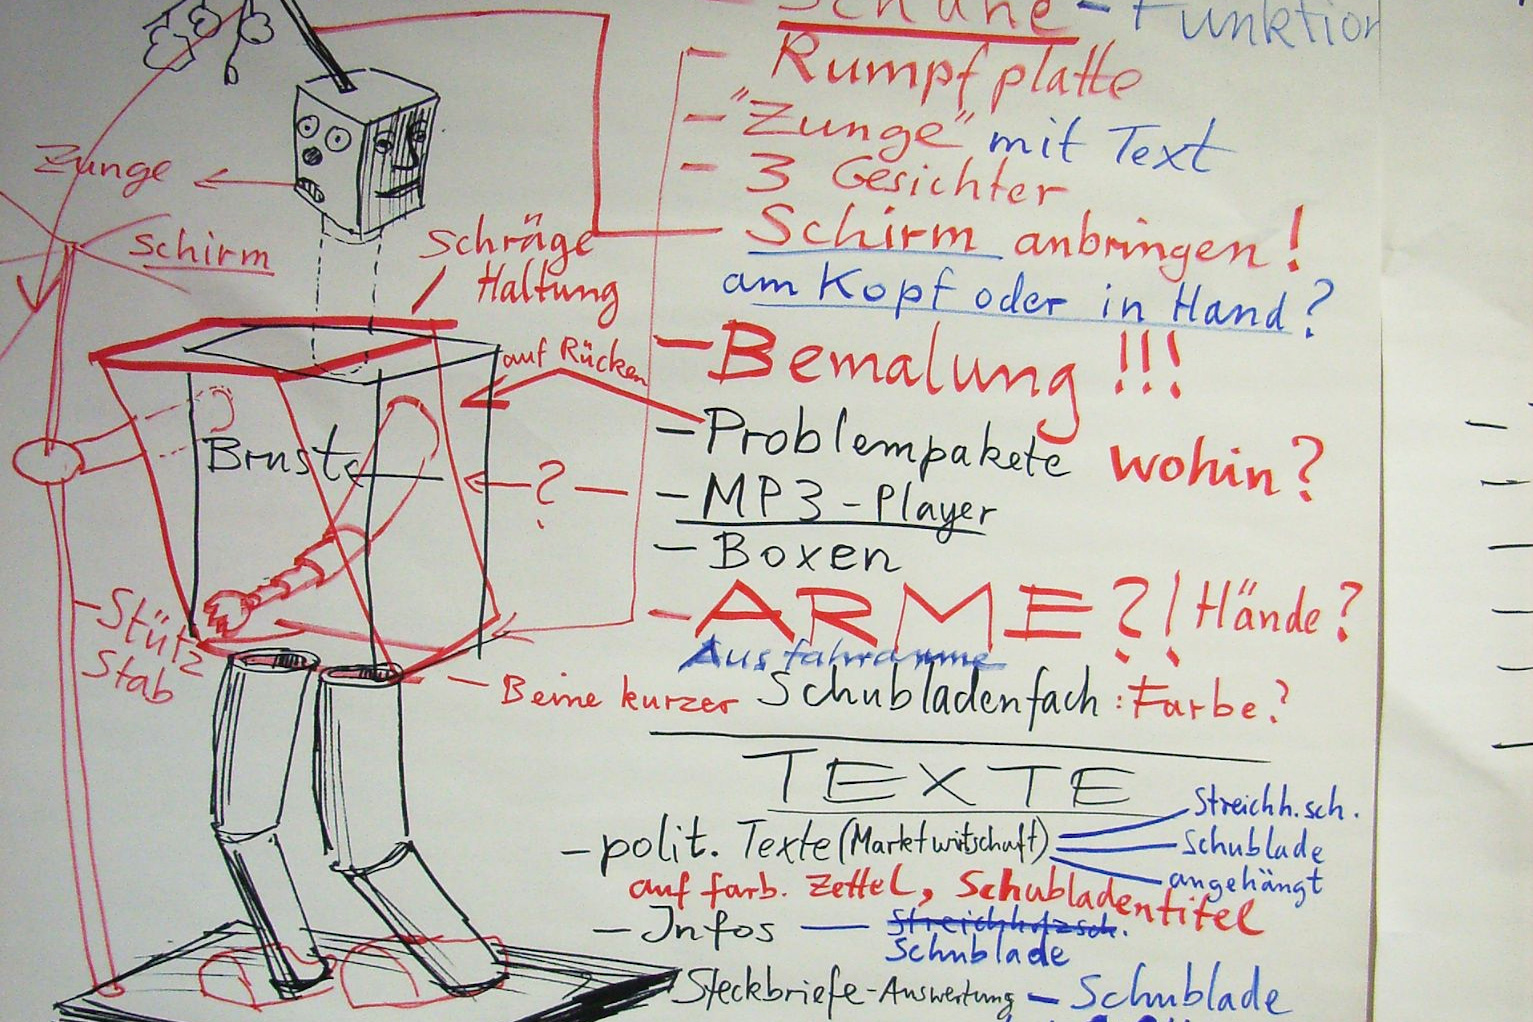 Schuhe - Funktion
- Rumpfplatte
- "Zunge" mit Text
- 3 Gesichter
Schirm anbringen!
am Kopf oder in Hand?
- Bemalung !!!
- Problempakete wohin?
- MP3-Player
- Boxen
- ARME?! Hände?
Schubladenfach: Farbe?
- Beine kurzer
Zunge
Schirm
Schräge
Haltung
auf Rücken
?
- Stütz
Stab
TEXTE
- polit. Texte (Marktwirtschaft)
Streichh.sch.
Schublade
angehängt
auf farb. Zettel, Schubladentitel
- Infos — Streichholzsch.
Schublade
Steckbriefe-Auswertung - Schublade